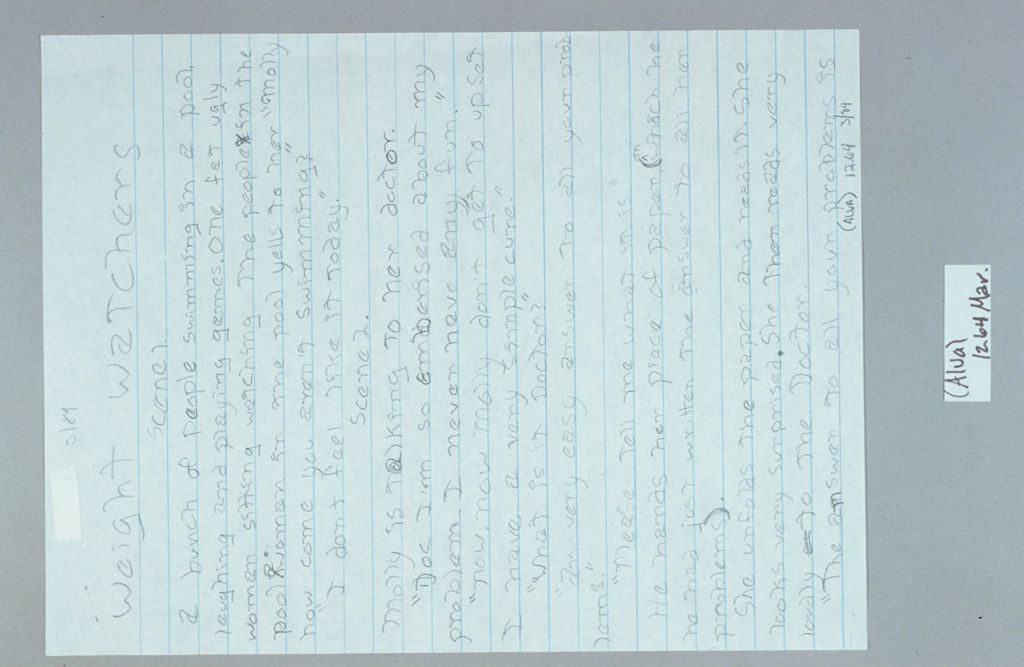 3/84
Weight watchers
Scene 1
a bunch of people swimming in a pool,
laughing and playing games. One fat ugly
woman sitting waching the people in the
pool. A woman in the pool yells to her "Molly
how come you arenit swimming?"
"I dont feel like it today."
Scene 2.
Molly is talking to her doctor.
"Doc I'm so embaresed about my
problem. I never have any fun."
"now, now Molly don't get to upset
I have a very simple cure."
"what is it Doctor?"
"an very easy answer to all your prob
lems."
"Please tell me what it is"
He hands her piece of paper. (Which he
he had just written the answer to all her
problems).
She unfolds the paper and reads it. She
looks very suprised. She then reads very
loudly to the Doctor.
"The answer to all your problems is
(Alva) 1264 3/84
(Alva)
1264 Mar.